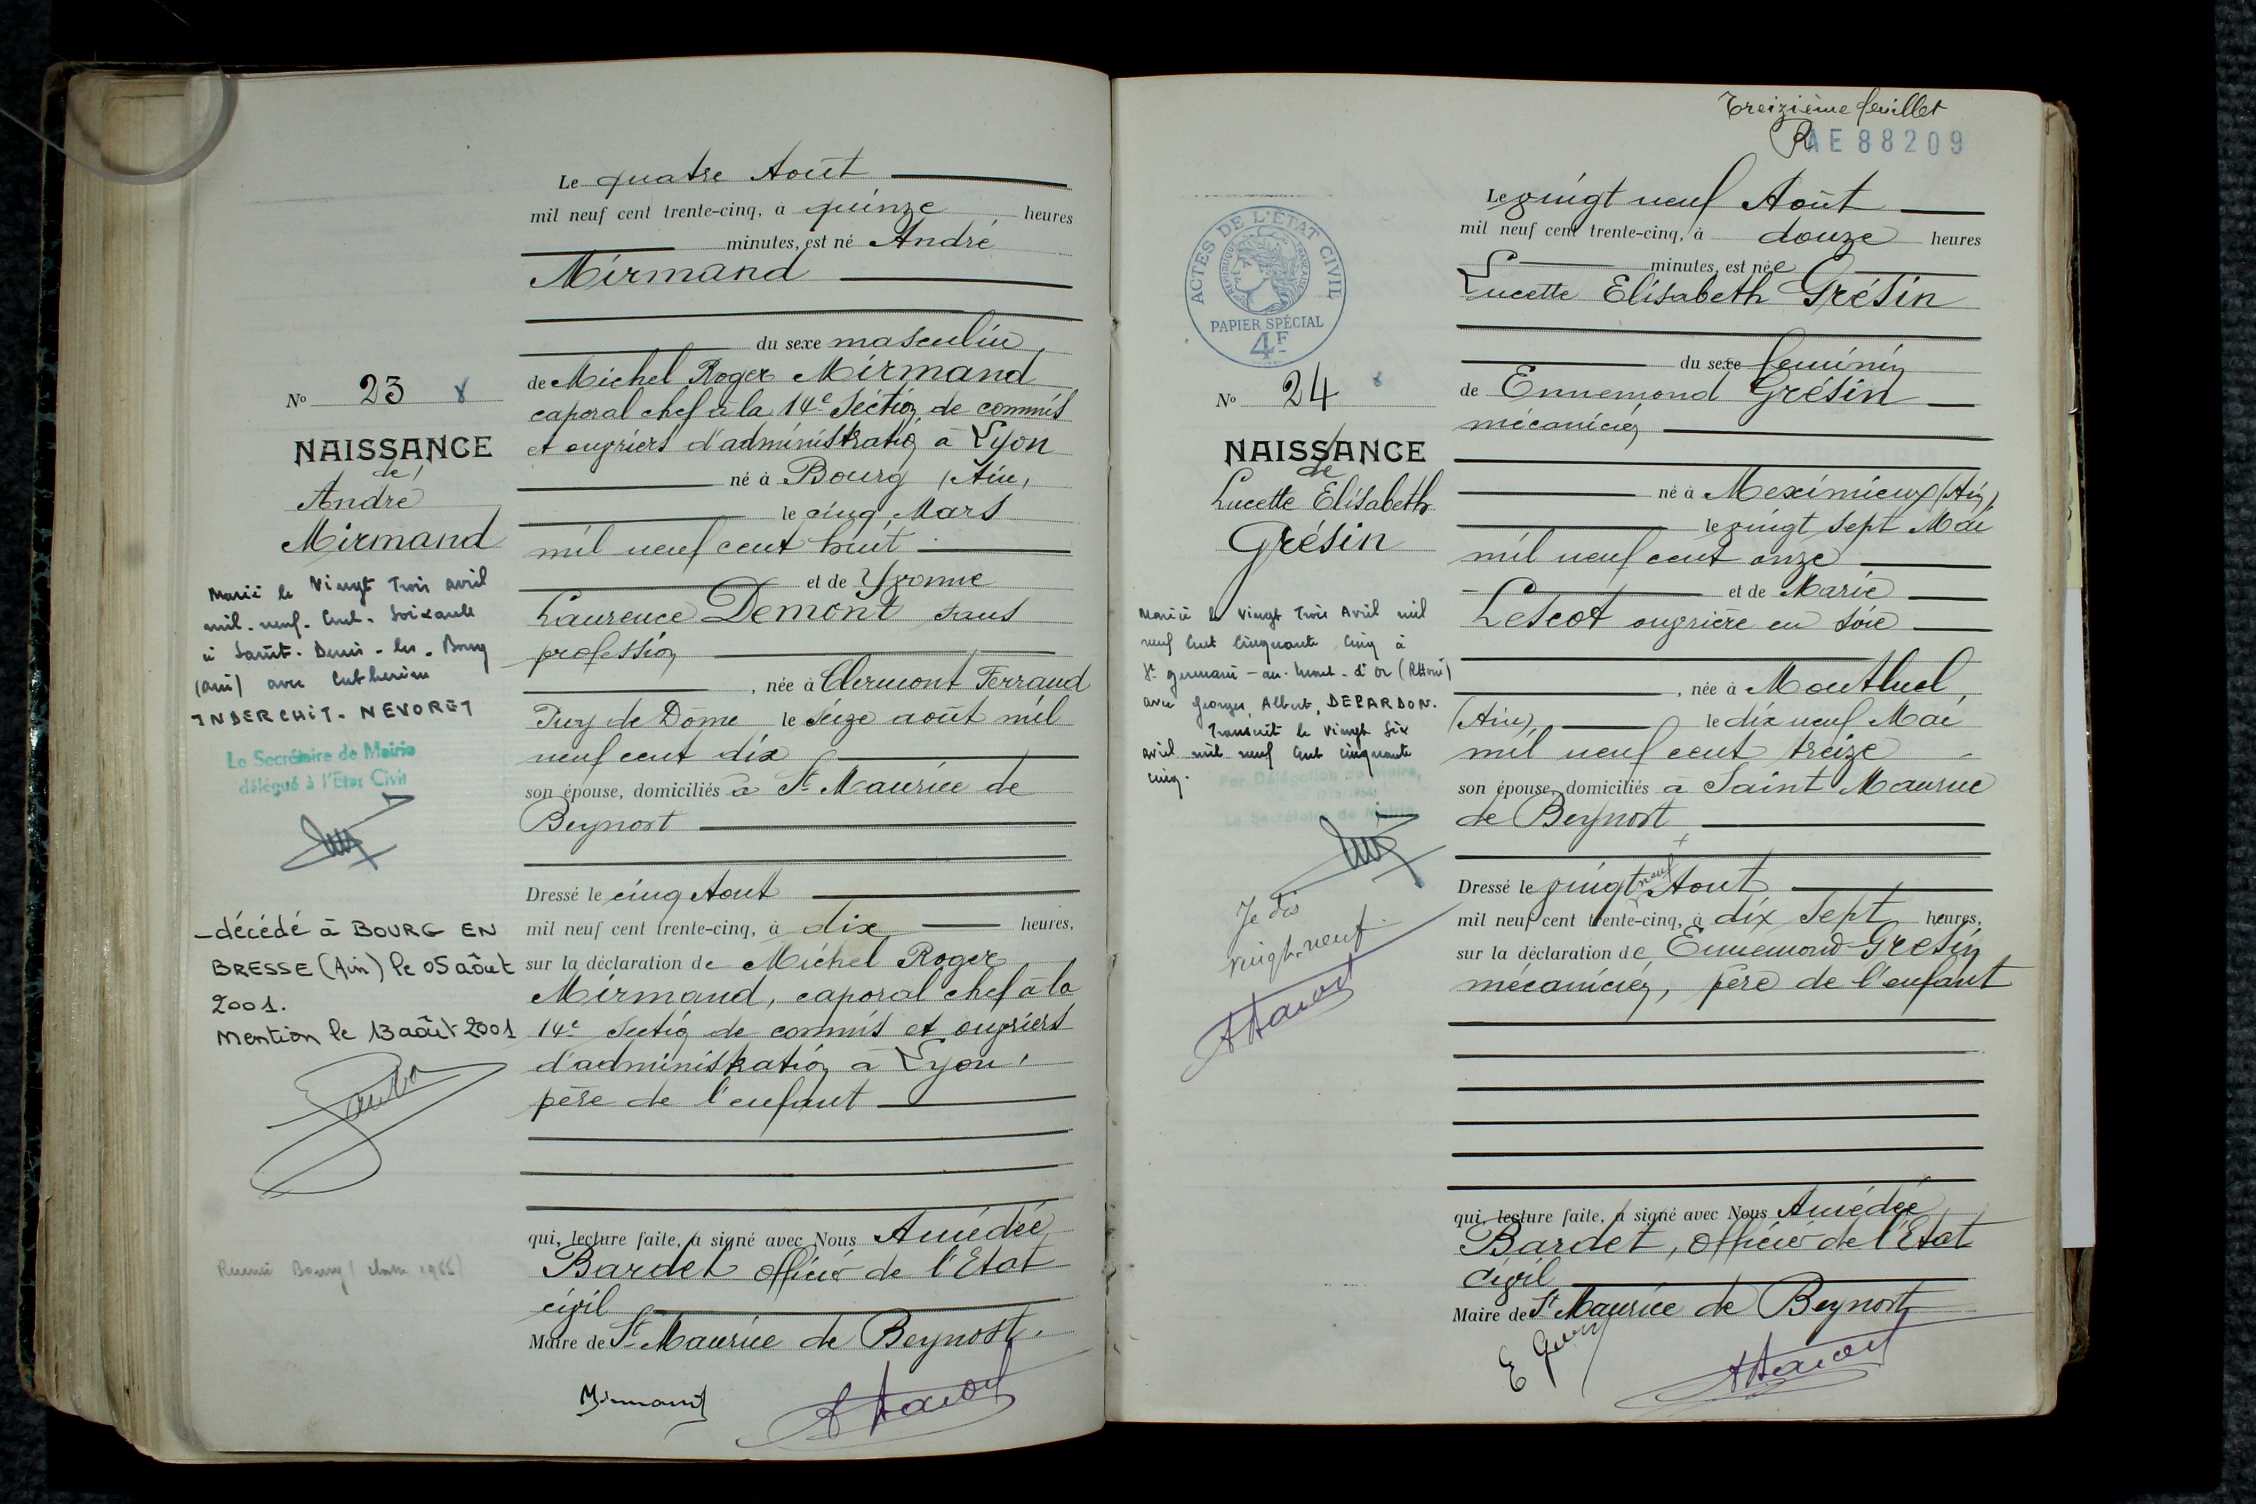 Le quatre Août
mil neuf cent trente-cinq, à quinze heures
minutes, est né André
Mirmand
du sexe masculin
de Michel Roger Mirmand
caporal chef à la 14e Section de commis
et ouvriers d'administration à Lyon
né à Bourg (Ain)
le cinq Mars
mil neuf cent huit
et de Yvonne
Laurence Demont sans
profession
, née à Clermont Ferrand
Puy de Dôme le seize août mil
neuf cent dix
son épouse, domiciliés à St Maurice de
Beynost
Dressé le cinq Aout
mil neuf cent trente-cinq, à dix heures,
sur la déclaration de Michel Roger
Mirmand, caporal chef à la
14e Section de commis et ouvriers
d'administration à Lyon,
père de l'enfant
qui, lecture faite, a signé avec Nous Amédée
Bardet officier de l'Etat
civil
Maire de St Maurice de Beynost.
Mirmand
No 23
NAISSANCE
de
André
Mirmand
Marié le Vingt Trois avril
mil. neuf. Cent. Soixante
à Saint. Denis. les. Bourg
(ain) avec Catherine
INDERCHIT. NEVORET
Le Secrétaire de Mairie
délégué à l'Etat Civil
décédé à BOURG EN
BRESSE (Ain) le 05 août
2001.
Mention le 13 août 2001
Treizième feuillet
AE 88209
Le vingt neuf Août
mil neuf cent trente-cinq, à douze heures
minutes, est née
Lucette Elisabeth Grésin
du sexe féminin
de Ennemond Grésin
mécanicien
né à Meximieux (Ain)
le vingt sept Mai
mil neuf cent onze
et de Marie
Lescot ouvrière en soie
, née à Montluel,
(Ain) le dix neuf Mai
mil neuf cent treize
son épouse, domiciliés à Saint Maurice
de Beynost
Dressé le vingt neuf Aout
mil neuf cent trente-cinq, à dix sept heures,
sur la déclaration de Ennemond Gresin
mécanicien, père de l'enfant
qui, lecture faite, a signé avec Nous Amédée
Bardet, officier de l'Etat
civil
Maire de St Maurice de Beynost
ACTES DE L'ETAT CIVIL
REPUBLIQUE FRANÇAISE
PAPIER SPÉCIAL
4F
No 24
NAISSANCE
de
Lucette Elisabeth
Grésin
Mariée le Vingt Trois Avril mil
neuf Cent Cinquante Cinq à
St germain - au. mont. d'or (Rhône)
avec Georges, Albert, DEPARDON.
Transcrit le Vingt Six
avril mil neuf Cent Cinquante
Cinq.
Par Délégation du Maire,
Le Secrétaire de Mairie
Je dis
vingt-neuf.